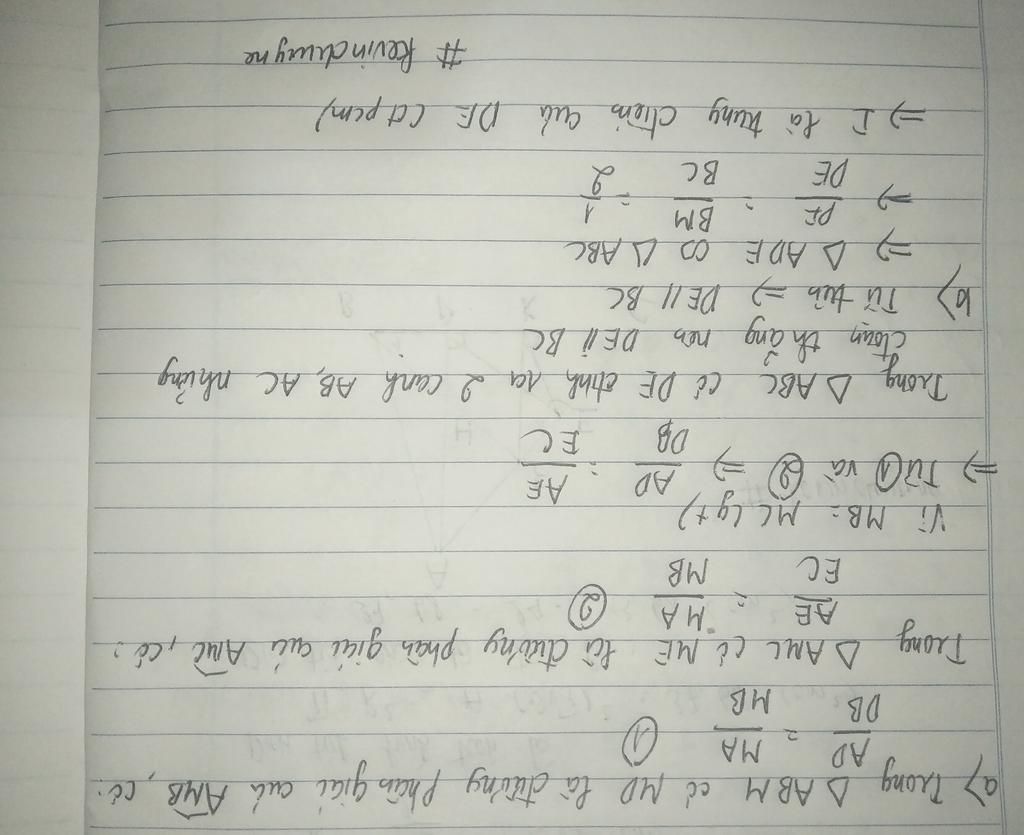 a) Trong Δ ABM có MD là đường phân giác của AMB, có:
AD/DB = MA/MB ①
Trong Δ AMC có ME là đường phân giác của AMC, có:
AE/EC = MA/MB ②
Vì MB = MC (gt)
=> Từ ① và ② => AD/DB = AE/EC
Trong Δ ABC có DE định ra 2 cạnh AB, AC những
đoạn thẳng nên DE // BC
b) Từ trên => DE // BC
=> Δ ADE ∽ Δ ABC
=> DE/DE = BM/BC = 1/2
=> I là trung điểm của DE (đpcm)
# Kevindwayne